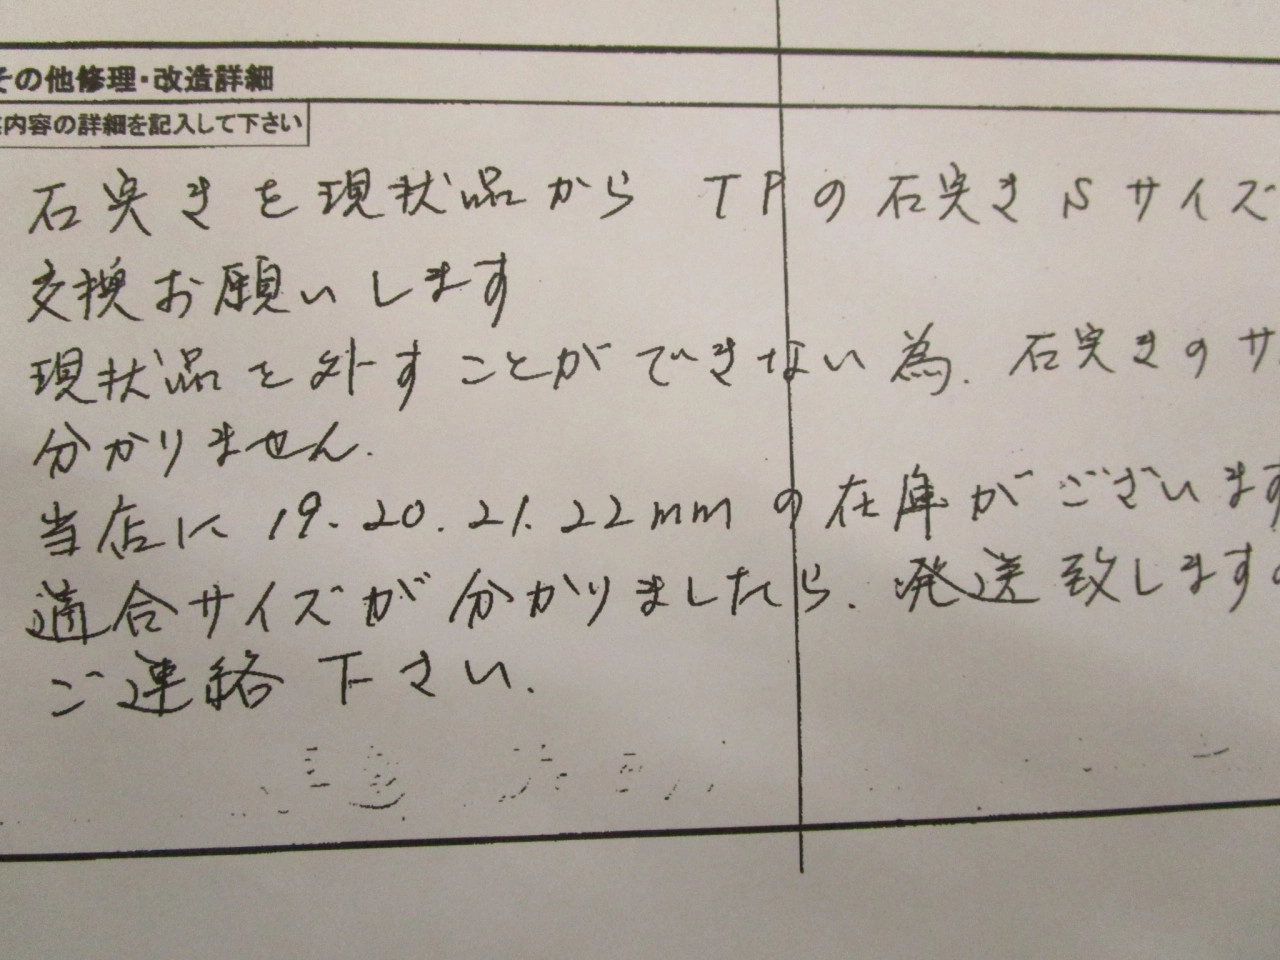 その他修理・改造詳細
内容の詳細を記入して下さい
石突きを現状品から TPの石突き Sサイズ
交換お願いします
現状品を外すことができない為、石突きのサ
分かりません.
当店に 19.20.21.22mmの在庫がございます
適合サイズが分かりましたら、発送致します
ご連絡下さい.